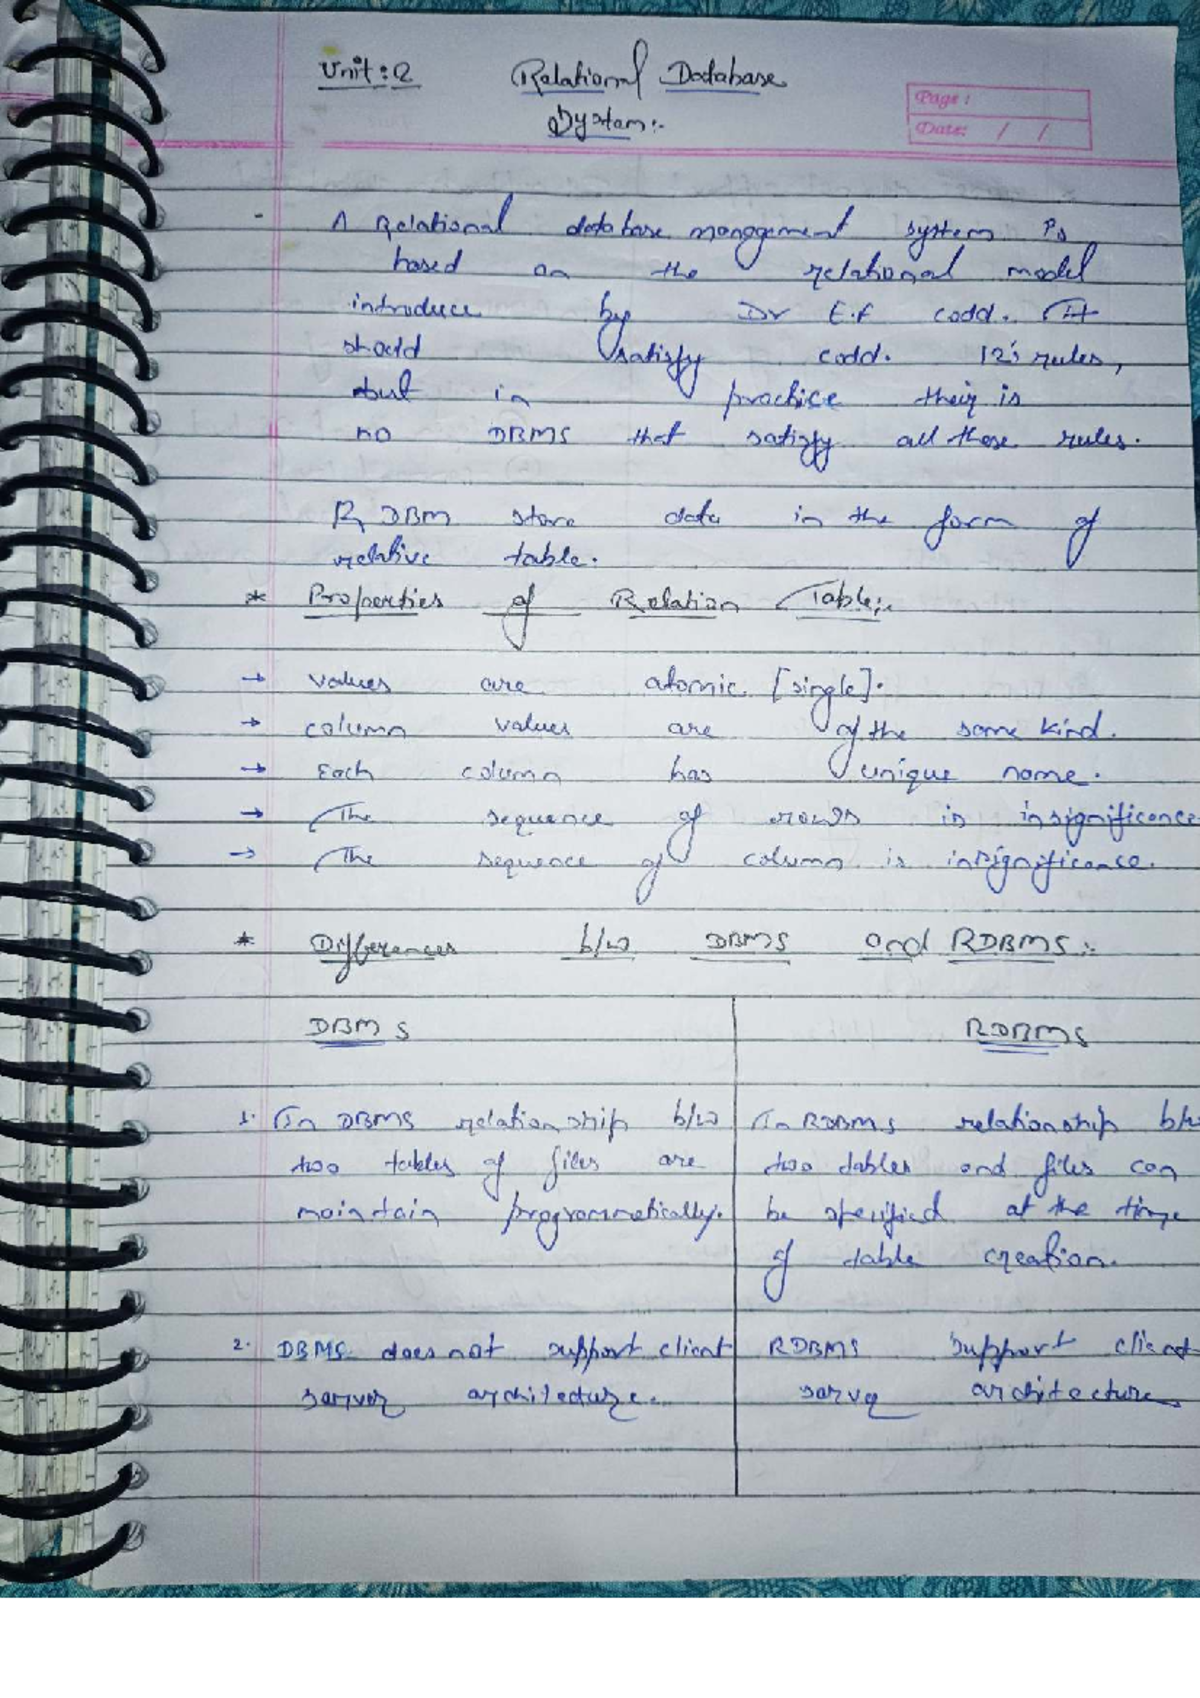 Unit: 2 Relational Database
System:-
Page:
Date: / /
A Relational database management system is
based on the relational model
introduce by Dr E.F codd. It
should satisfy codd. 12's rules,
but in practice their is
no DBMS that satisfy all these rules.
R DBM store data in the form of
relative table.
* Properties of Relation Table:-
→ values are atomic [single].
→ column values are of the same kind.
→ Each column has unique name.
→ The sequence of rows is insignificance
→ The sequence of column is insignificance.
* Differences b/w DBMS and RDBMS:-
DBMS
1. In DBMS relationship b/w
two tables of files are
maintain programmetically.
2. DBMS does not support client
server architecture.
RDBMS
In RDBMS relationship b/w
two tables and files can
be specified at the time
of table creation.
RDBMS support client
server architecture